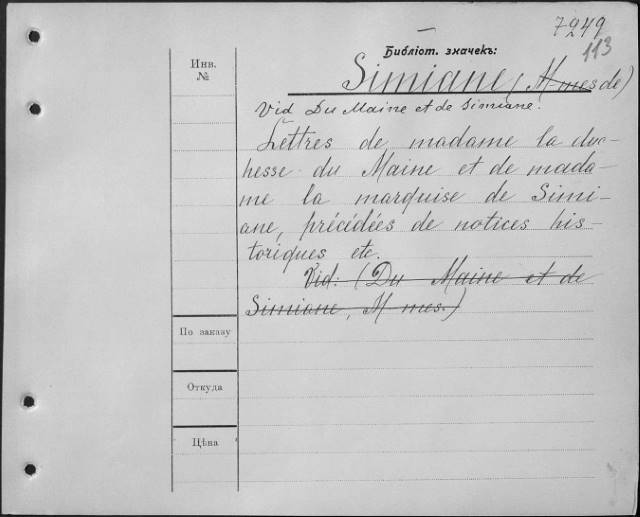 7249
113
Библіот. значекъ:
Инв.
№
Simiane (M-mes de)
Vid Du Maine et de Simiane.
Lettres de madame la duc-
hesse du Maine et de mada-
me la marquise de Simi-
ane, précédées de notices his-
toriques etc.
Vid: (Du Maine et de
Simiane, M-mes.)
По заказу
Откуда
Цѣна